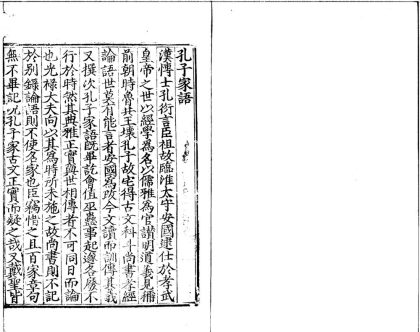 孔子家語
漢博士孔衍言臣祖故臨淮太守安國逮仕於孝武
皇帝之世以經學為名以儒雅為官讚明道義見稱
前朝時魯共王壞孔子故宅得古文科斗尚書孝經
論語世莫有能言者安國為改今文讀而訓傳其義
又撰次孔子家語既畢訖會值巫蠱事起遂各廢不
行於時然其典雅正實與世相傳者不可同日而論
也光祿大夫向以其為時所未施之故尚書則不記
於别錄論語則不使名家也臣竊惜之且百家章句
無不畢記况孔子家古文正實而疑之哉又戴聖皆